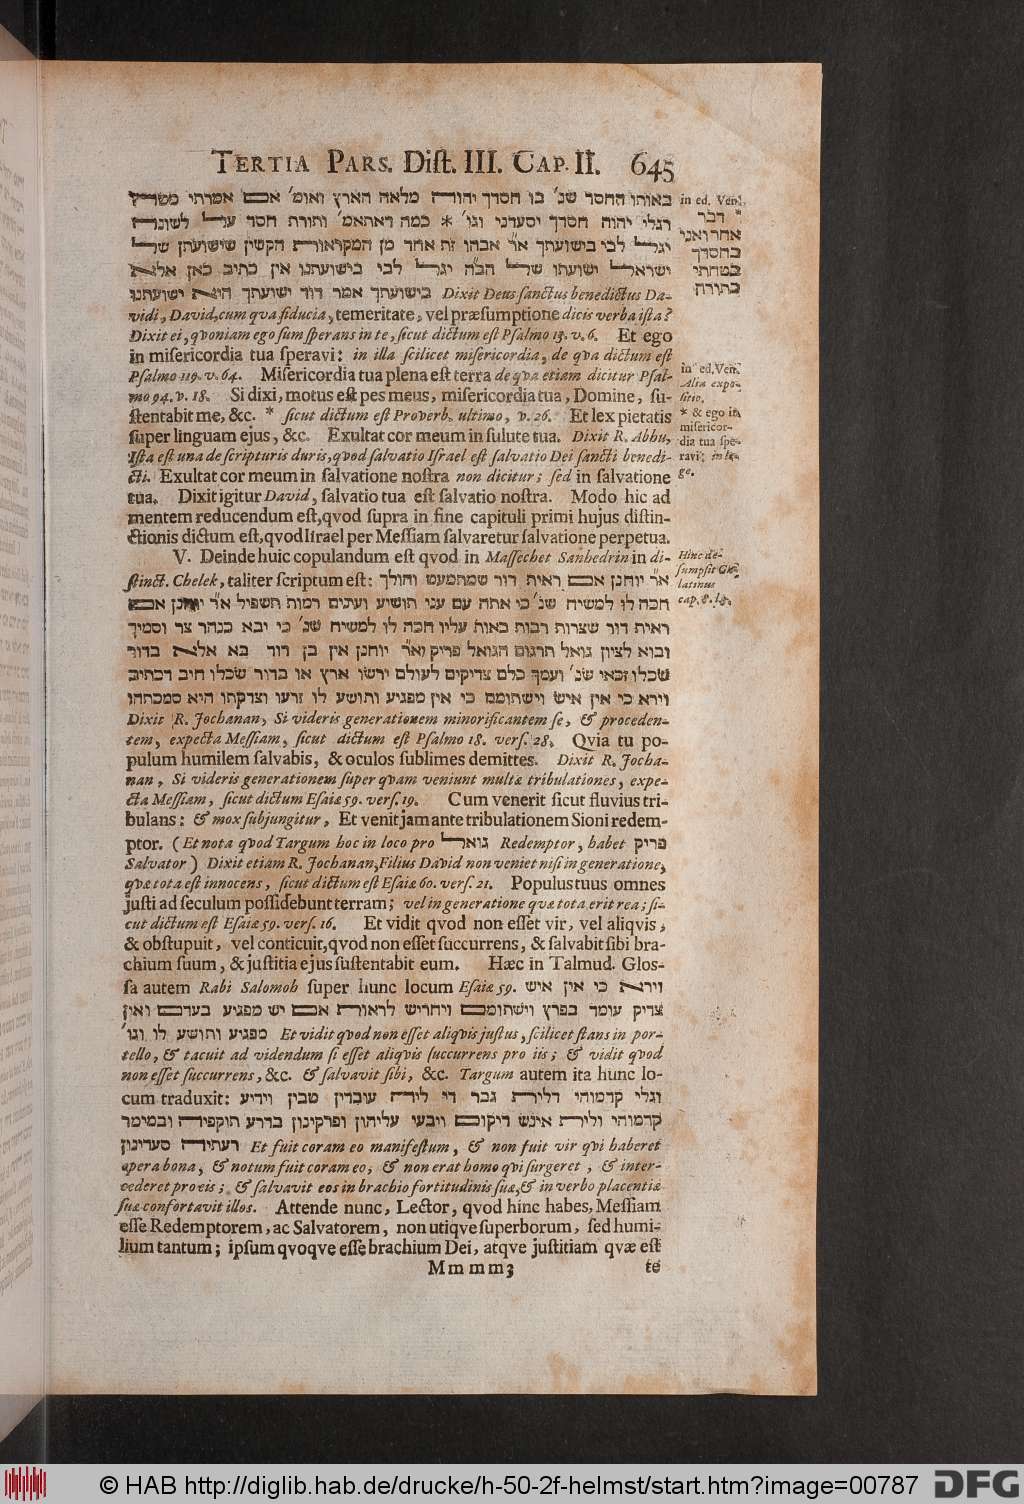 TERTIA PARS. Dist. III. CAP. II. 645
באותו החסד שנ׳ בו חסדך יהוה מלאה הארץ ואומ׳ אם אמרתי משה
רגלי יהוה חסדך יסעדני וגו׳ * כמה דאתאמ׳ ותורת חסד על לשונה
יגל לבי בישועתך א״ר אבהו זת אחד מן המקראות הקשין שישועתן של
ישראל ישועתו של הב״ה יגל לבי בישועתנו אין כתיב כאן אלא
בישועתך אמר דוד ישועתך היא ישועתנו Dixit Deus sanctus benedictus Da-
vidi, David, cum qva fiducia, temeritate, vel præsumptione dicis verba ista?
Dixit ei, qvoniam ego sum sperans in te, sicut dictum est Psalmo 13. v. 6. Et ego
in misericordia tua speravi: in illa scilicet misericordia, de qva dictum est
Psalmo 119. v. 64. Misericordia tua plena est terra de qva etiam dicitur Psal-
mo 94. v. 18. Si dixi, motus est pes meus, misericordia tua, Domine, su-
stentabit me, &c. * sicut dictum est Proverb. ultimo, v. 26. Et lex pietatis
super linguam ejus, &c. Exultat cor meum in sulute tua. Dixit R. Abhu,
Ista est una de scripturis duris, qvod salvatio Israel est salvatio Dei sancti benedi-
cti. Exultat cor meum in salvatione nostra non dicitur; sed in salvatione
tua. Dixit igitur David, salvatio tua est salvatio nostra. Modo hic ad
mentem reducendum est, qvod supra in fine capituli primi hujus distin-
ctionis dictum est, qvod Israel per Messiam salvaretur salvatione perpetua.
V. Deinde huic copulandum est qvod in Massechet Sanhedrin in di-
stinct. Chelek, taliter scriptum est: א״ר יוחנן אם ראית דור שמתמעט והולך
חכה לו למשיח שנ׳ כי אתה עם עני תושיע ועינים רמות תשפיל א״ר יוחנן אם
ראית דור שצרות רבות באות עליו חכה לו למשיח שנ׳ כי יבא כנהר צר וסמיך
ובוא לציון גואל תרגום הגואל פריק וא״ר יוחנן אין בן דוד בא אלא בדור
שכלו זכאי שנ׳ ועמך כלם צדיקים לעולם ירשו ארץ או בדור שכלו חיב דכתיב
וירא כי אין איש וישתומם כי אין מפגיע ותושע לו זרעו וצדקתו היא סמכתהו
Dixit R. Jochanan, Si videris generationem minorificantem se, & proceden-
tem, expecta Messiam, sicut dictum est Psalmo 18. vers. 28. Qvia tu po-
pulum humilem salvabis, & oculos sublimes demittes. Dixit R. Jocha-
nan, Si videris generationem super qvam veniunt multæ tribulationes, expe-
cta Messiam, sicut dictum Esaiæ 59. vers. 19. Cum venerit sicut fluvius tri-
bulans: & mox subjungitur, Et venit jam ante tribulationem Sioni redem-
ptor. (Et nota qvod Targum hoc in loco pro גואל Redemptor, habet פריק
Salvator) Dixit etiam R. Jochanan, Filius David non veniet nisi in generatione,
qvæ tota est innocens, sicut dictum est Esaiæ 60. vers. 21. Populus tuus omnes
justi ad seculum possidebunt terram; vel in generatione qvæ tota erit rea; si-
cut dictum est Esaiæ 59. vers. 16. Et vidit qvod non esset vir, vel aliqvis,
& obstupuit, vel conticuit, qvod non esset succurrens, & salvabit sibi bra-
chium suum, & justitia ejus sustentabit eum. Hæc in Talmud. Glos-
sa autem Rabi Salomoh super hunc locum Esaiæ 59. וירא כי אין איש
צדיק עומד בפרץ וישתומם ויחריש לראות אם יש מפגיע בעדם ואין
מפגיע ותושע לו וגו׳ Et vidit qvod non esset aliqvis justus, scilicet stans in por-
tello, & tacuit ad videndum si esset aliqvis succurrens pro iis; & vidit qvod
non esset succurrens, &c. & salvavit sibi, &c. Targum autem ita hunc lo-
cum traduxit: וגלי קדמוהי דלית גבר די לית עובדין טבין וידיע
קדמוהי ולית אינש דיקום ויבעי עליהון ופרקינון בדרע תוקפיה ובמימר
רעתיה סעדינון Et fuit coram eo manifestum, & non fuit vir qvi haberet
opera bona, & notum fuit coram eo, & non erat homo qvi surgeret, & inter-
cederet pro eis; & salvavit eos in brachio fortitudinis suæ, & in verbo placentiæ
suæ confortavit illos. Attende nunc, Lector, qvod hinc habes, Messiam
esse Redemptorem, ac Salvatorem, non utiqve superborum, sed humi-
lium tantum; ipsum qvoqve esse brachium Dei, atqve justitiam qvæ est
Mmmm3 te
in ed. Ven.
* דבר
אחר ואני
בחסדך
בטחתי
כתורת
in ed. Ven.
Alia expo-
sitio.
* & ego in
misericor-
dia tua spe-
ravi; in le-
ge.
Hinc de-
sumpsit Ga-
latinus
cap. 8. l. 3.
© HAB http://diglib.hab.de/drucke/h-50-2f-helmst/start.htm?image=00787 DFG